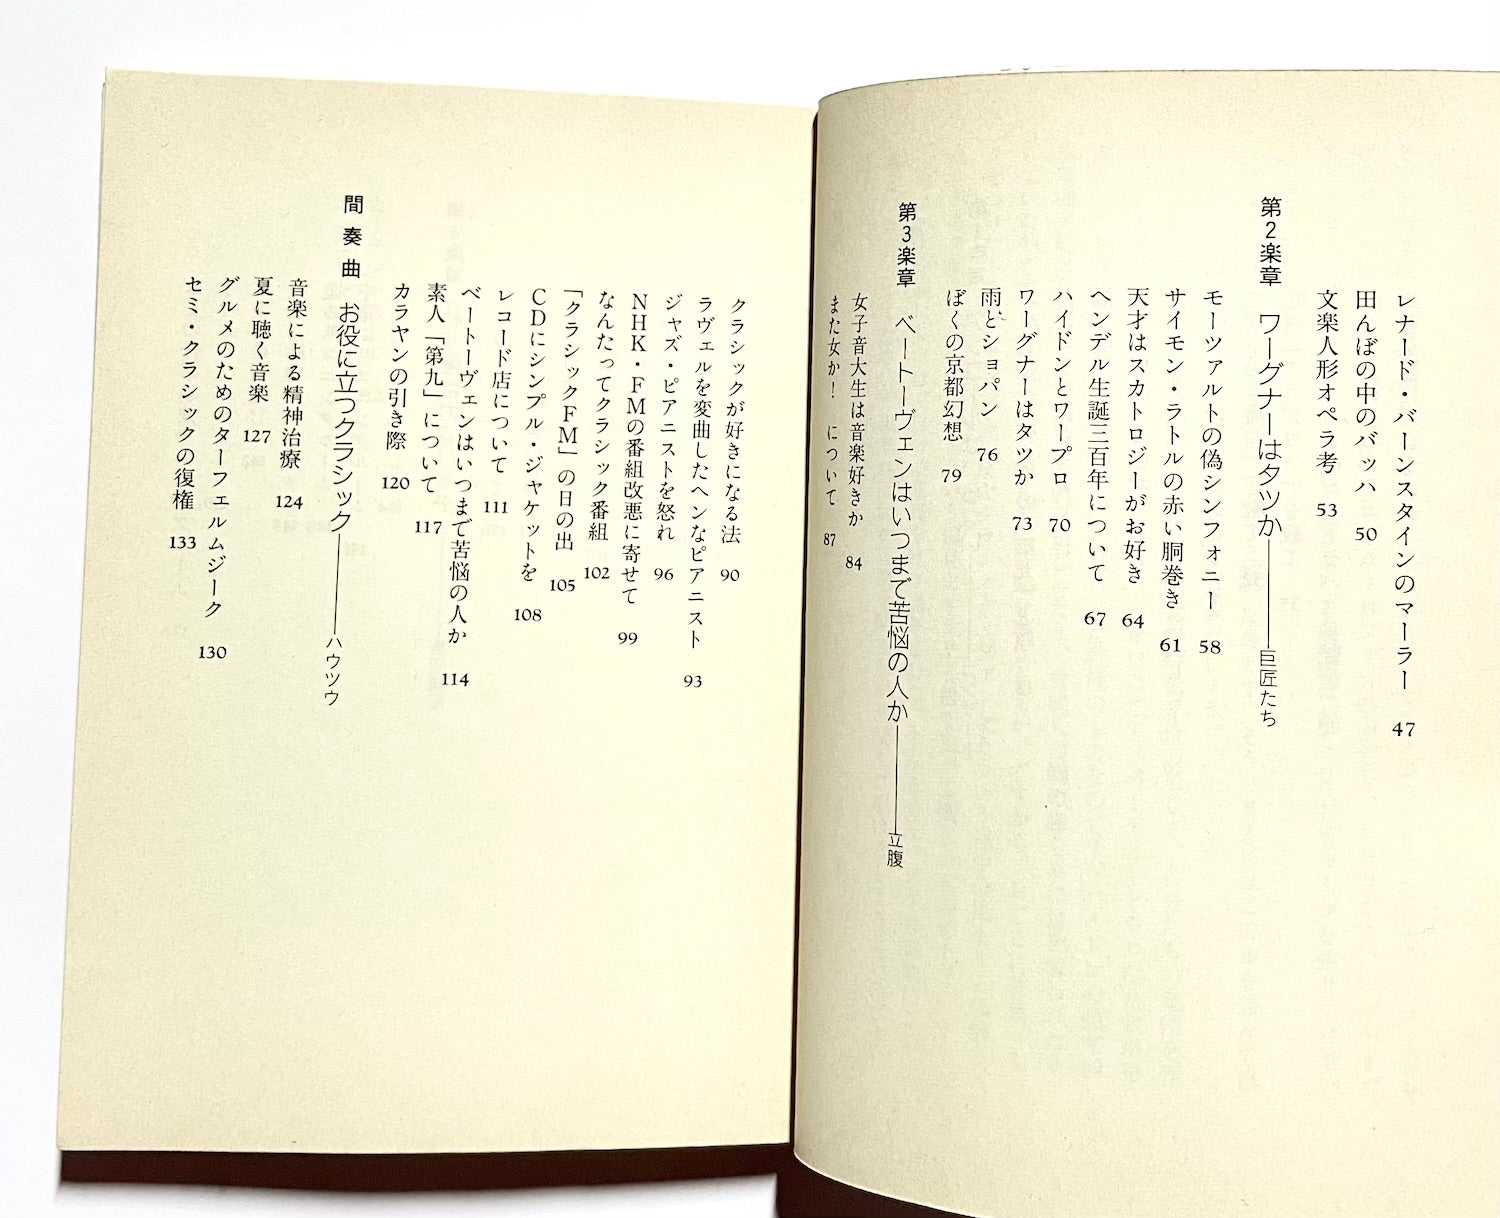 レナード・バーンスタインのマーラー 47
田んぼの中のバッハ 50
文楽人形オペラ考 53
第2楽章 ワーグナーはタツか――巨匠たち
モーツァルトの偽シンフォニー 58
サイモン・ラトルの赤い胴巻き 61
天才はスカトロジーがお好き 64
ヘンデル生誕三百年について 67
ハイドンとワープロ 70
ワーグナーはタツか 73
雨とショパン 76
ぼくの京都幻想 79
第3楽章 ベートーヴェンはいつまで苦悩の人か――立腹
女子音大生は音楽好きか 84
また女か! について 87
クラシックが好きになる法 90
ラヴェルを変曲したヘンなピアニスト 93
ジャズ・ピアニストを怒れ 96
NHK・FMの番組改悪に寄せて 99
なんたってクラシック番組 102
「クラシックFM」の日の出 105
CDにシンプル・ジャケットを 108
レコード店について 111
ベートーヴェンはいつまで苦悩の人か 114
素人「第九」について 117
カラヤンの引き際 120
間奏曲 お役に立つクラシック――ハウツウ
音楽による精神治療 124
夏に聴く音楽 127
グルメのためのターフェルムジーク 130
セミ・クラシックの復権 133